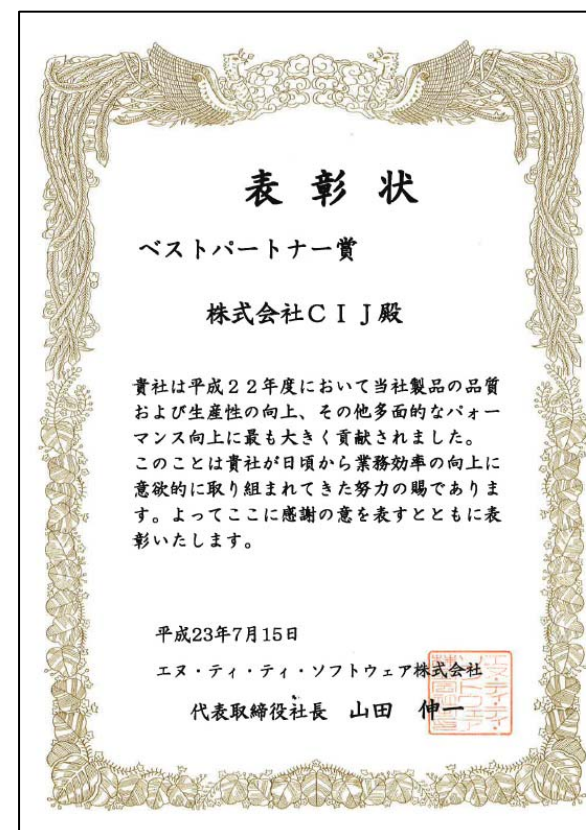 表彰状
ベストパートナー賞
株式会社CIJ殿
貴社は平成22年度において当社製品の品質
および生産性の向上、その他多面的なパォー
マンス向上に最も大きく貢献されました。
このことは貴社が日頃から業務効率の向上に
意欲的に取り組まれてきた努力の賜でありま
す。よってここに感謝の意を表すとともに表
彰いたします。
平成23年7月15日
エヌ・ティ・ティ・ソフトウェア株式会社
代表取締役社長 山田 伸一